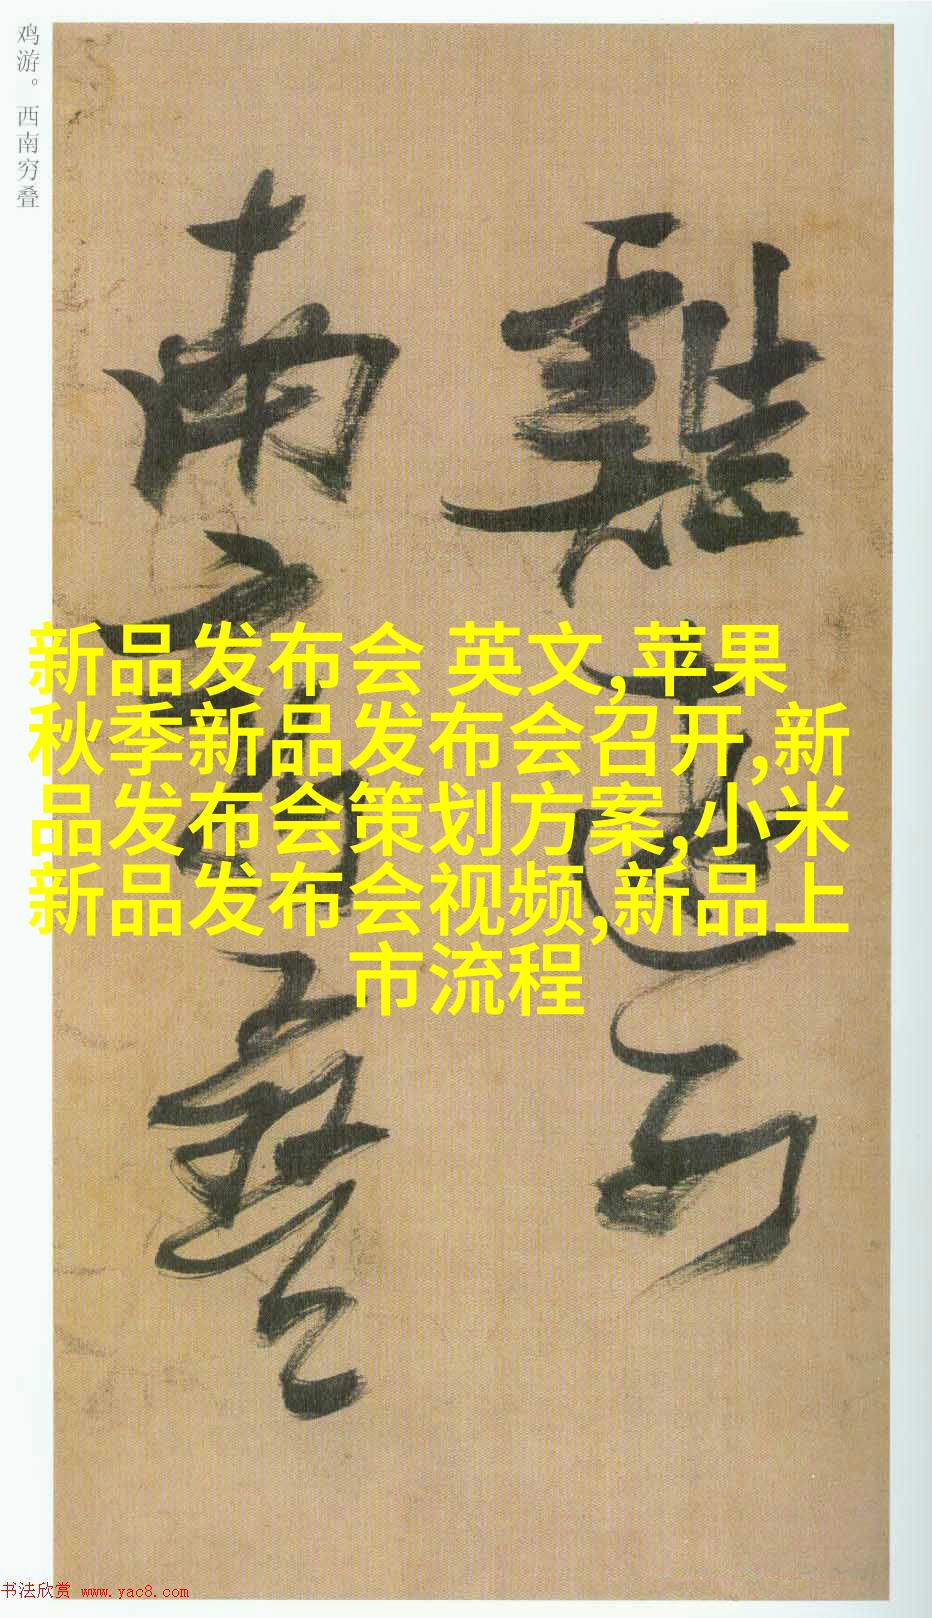 鸡游。西南穷叠
雞遊西
南穷叠
新品发布会 英文,苹果
秋季新品发布会召开,新
品发布会策划方案,小米
新品发布会视频,新品上
市流程
书法欣赏 www.yac8.com